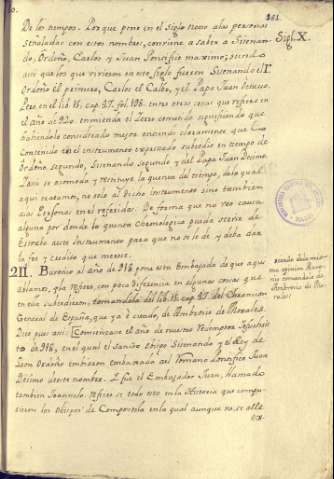 381.
De los tiempos. Porque pone en el siglo nono alas personas
señaladas con estos nombres, conviene a saber a Sisenan-
do, Ordoño, Carlos y Juan Pontifice maximo; siendo
assi que los que vivieron en este siglo fueron Sisenando el I.º
Ordoño el primero, Carlos el Calbo, y el Papa Juan octavo.
Pero en el lib. 15. cap. 47. fol. entre otras cosas que refiere en
el año de 920. enmienda el yerro comun significando que
haviendolo considerado mejor entendi claramente que lo
contenido en el instrumento expresado subcedio en tiempo de
Ordoño segundo, Sisenando segundo y del Papa Juan Decimo
Para se acomoda y restituye la quenta del tiempo, dela qual
aqui tratamos, no solo al dicho instrumento sino tambien
alas Personas en el referidas. De forma que no veo causa
alguna por donde la quenta Chronologica pueda
a este instrumento para que no sele de y deba dar
la fee y credito que merece.
Sigl. X.
211. Baronio al año de 918. pone esta Embajada de que aqui
hablamos, que refiere, con poca diferencia en algunas cosas que
en ella subcedieron, tomandola del lib. 15. cap. 47. del Chronicon
General de España, que ya è citado, de Ambrosio de Morales.
Dice pues assi: [Comiençace el año de nuestro Redemptor
de 918, en el qual el Sancto Obispo Sisenando y el Rey de
Leon Ordoño embiaron embaxada al Romano Pontifice Juan
Decimo deste nombre. I fue el Embajador Juan, llamado
tambien Refiere se todo esto en la Historia que compu-
sieron los Obispos de Compostela en la qual aunque no se alle
lo mismo
opinion
nio tomandolo de
Ambrosio de Mo-
rales: